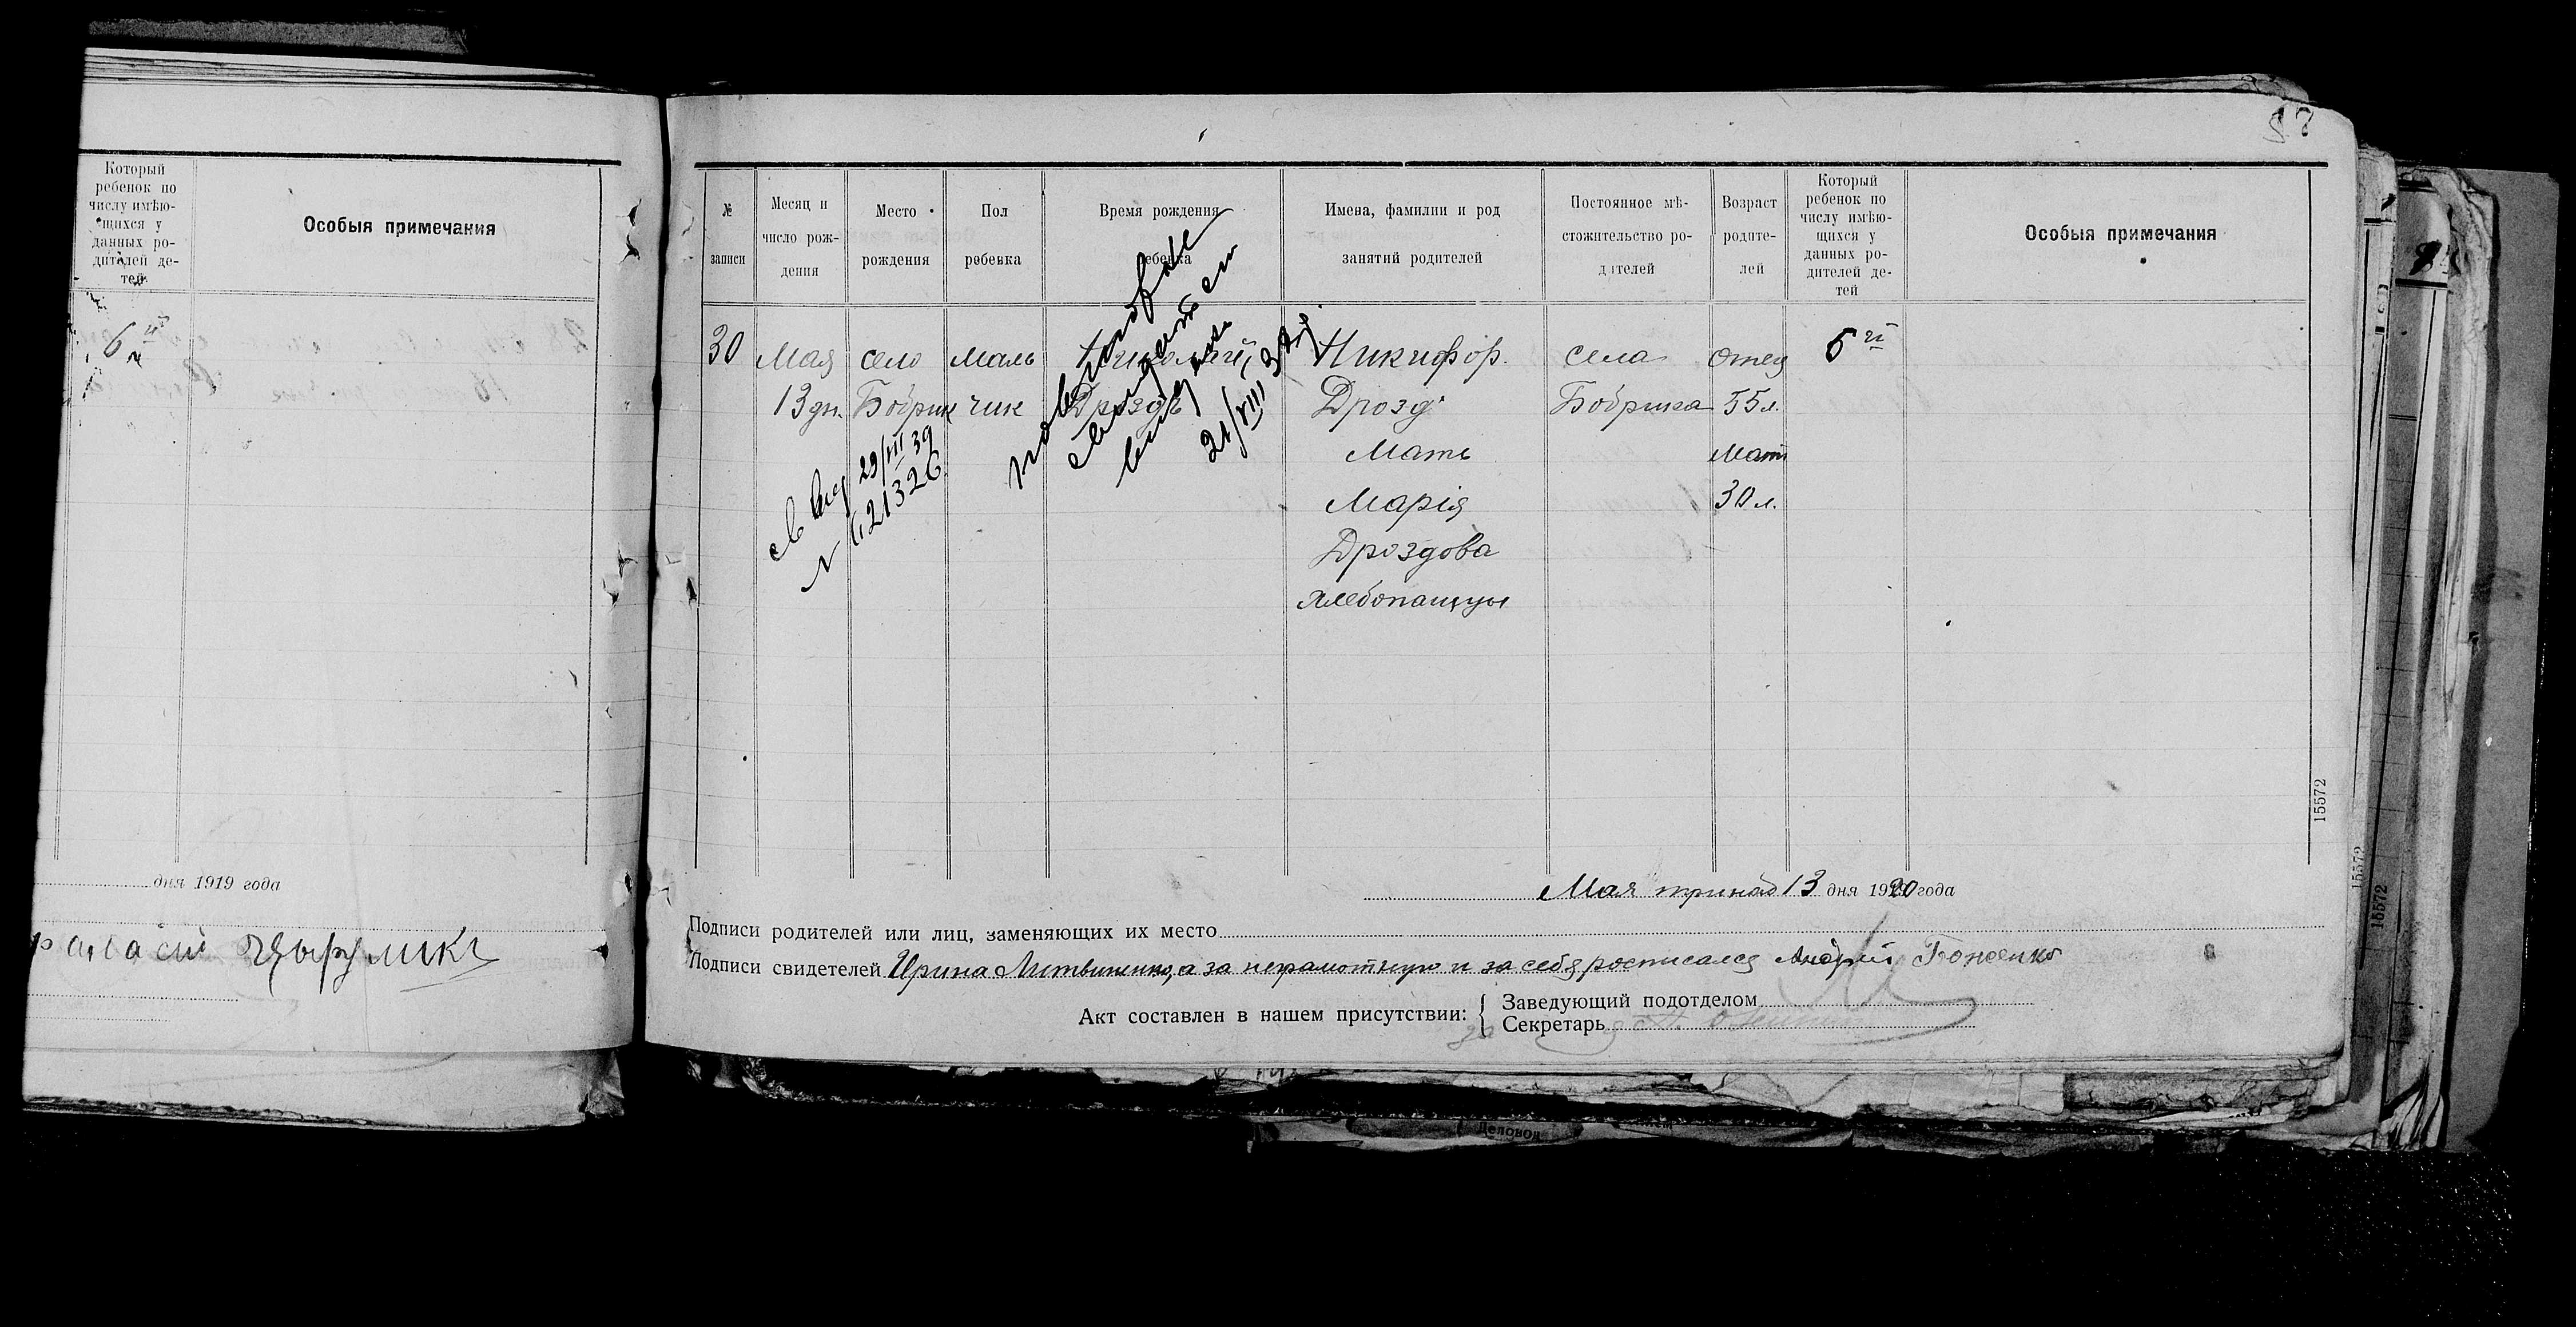 Который
ребенок по
числу имѣю-
щихся у
данных ро-
дителей де-
тей
Особыя примечания
6й
дня 1919 года
87
№
записи
Месяц и
число рож-
дения
Место
рождения
Пол
ребенка
Время рождения
ребенка
Имена, фамилии и род
занятий родителей
Постоянное мѣ-
стожительство ро-
дителей
Возраст
родите-
лей
Который
ребенок по
числу имѣю-
щихся у
данных ро-
дителей де-
тей
Особыя примечания
30
Мая
13 дн.
село
Бобрик
маль
чик
Николай
Дроздъ
повторное
свидетельст
выдано
21/VIII 37
29/VII 39
№ 421326
Никифор.
Дрозд
Мать
Марія
Дроздова
хлебопашцы
села
Бобрика
отец
55 л.
Мать
30 л.
6й
15572
Мая тринад 13 дня 1920 года
Подписи родителей или лиц, заменяющих их место
Подписи свидетелей Ирина Литвиненко, а за неграмотную и за себя росписался Андрей Боженко
Акт составлен в нашем присутствии:
Заведующий подотделом
Секретарь
15572
15572